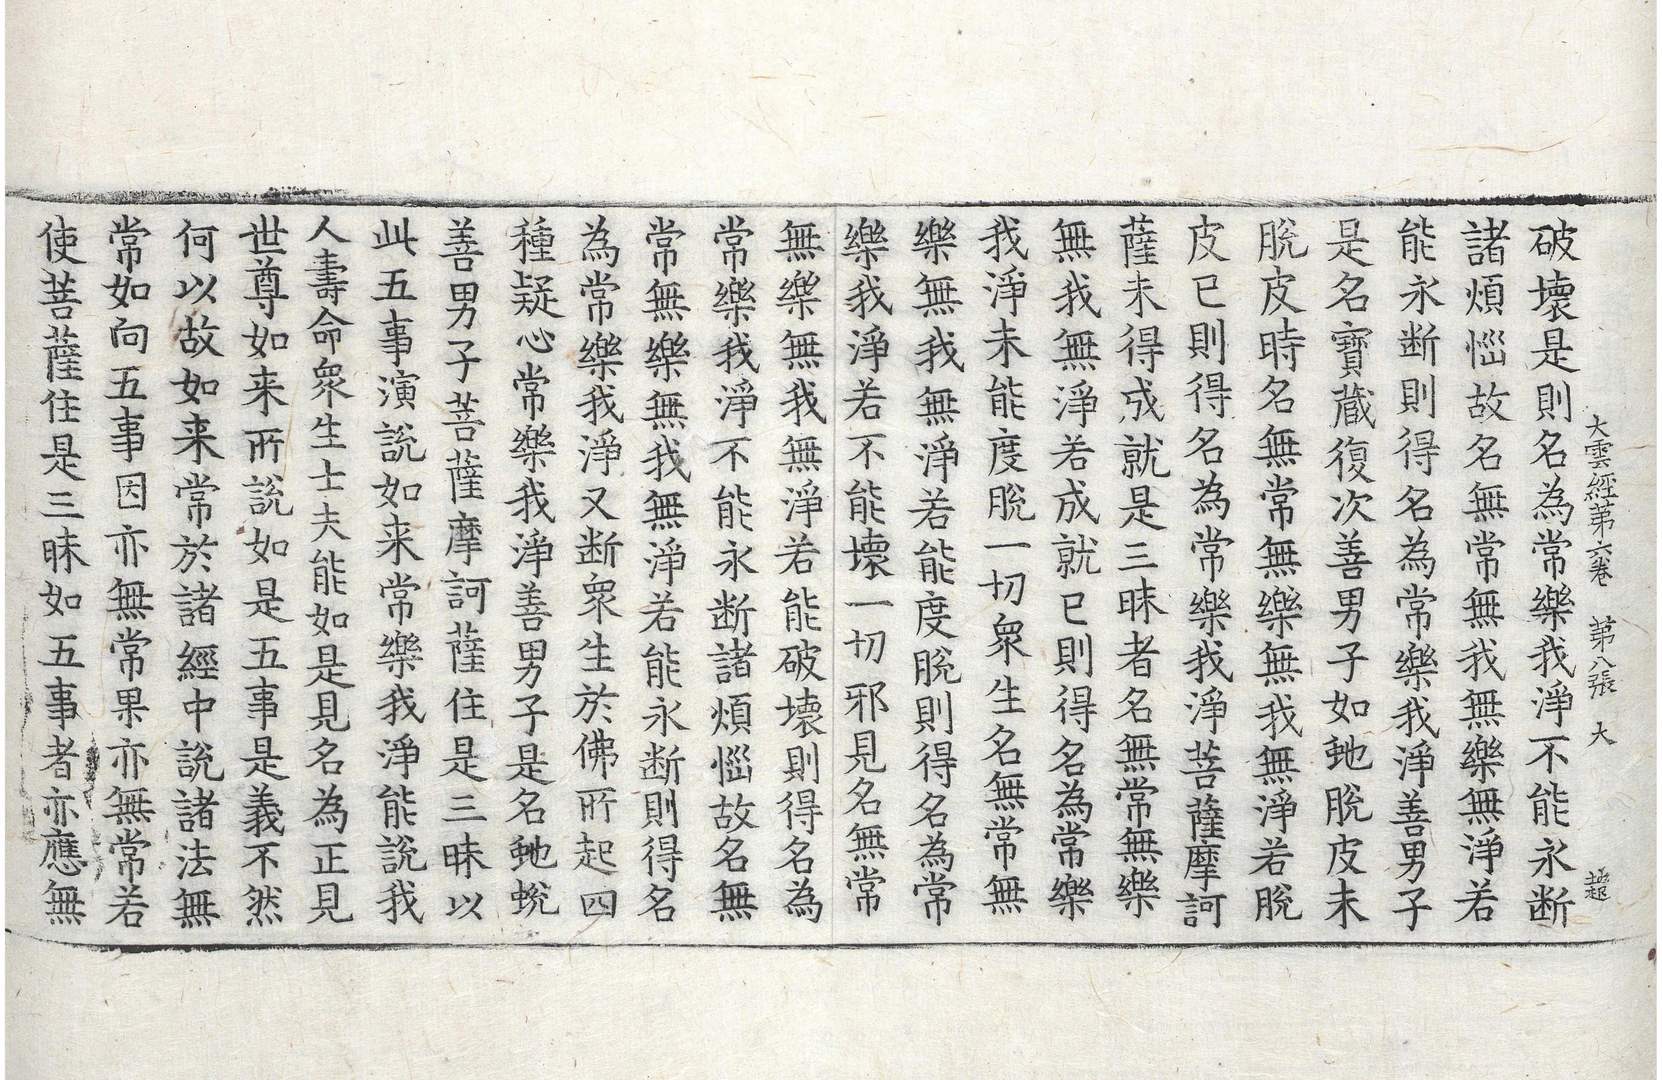 大雲經第六卷　第八張　大　趍
破壞是則名為常樂我淨不能永断
諸煩惱故名無常無我無樂無淨若
能永断則得名為常樂我淨善男子
是名寶藏復次善男子如虵脫皮未
脫皮時名無常無樂無我無淨若脫
皮已則得名為常樂我淨菩薩摩訶
薩未得成就是三昧者名無常無樂
無我無淨若成就已則得名為常樂
我淨未能度脫一切衆生名無常無
樂無我無淨若能度脫則得名為常
樂我淨若不能壞一切邪見名無常
無樂無我無淨若能破壞則得名為
常樂我淨不能永断諸煩惱故名無
常無樂無我無淨若能永断則得名
為常樂我淨又断衆生於佛所起四
種疑心常樂我淨善男子是名虵蛻
善男子菩薩摩訶薩住是三昧以
此五事演說如来常樂我淨能說我
人壽命衆生士夫能如是見名為正見
世尊如来所說如是五事是義不然
何以故如来常於諸經中說諸法無
常如向五事因亦無常果亦無常若
使菩薩住是三昧如五事者亦應無